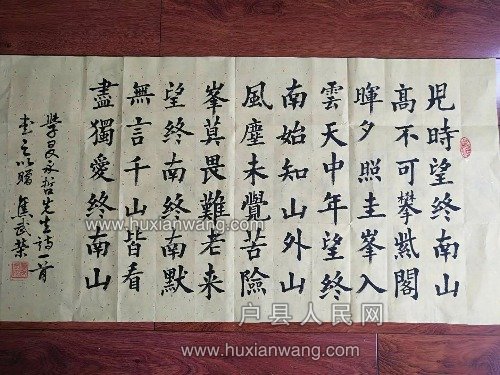 児時望終南山
高不可攀紫閣
暉夕照圭峯入
雲天中年望終
南始知山外山
風塵未覺苦險
峯莫畏難老来
望終南終南默
無言千山皆看
盡獨愛終南山
永哲先生詩一首
以贈 焦武榮
www.huxianwang.com
户县人民网
www.huxianwang.com